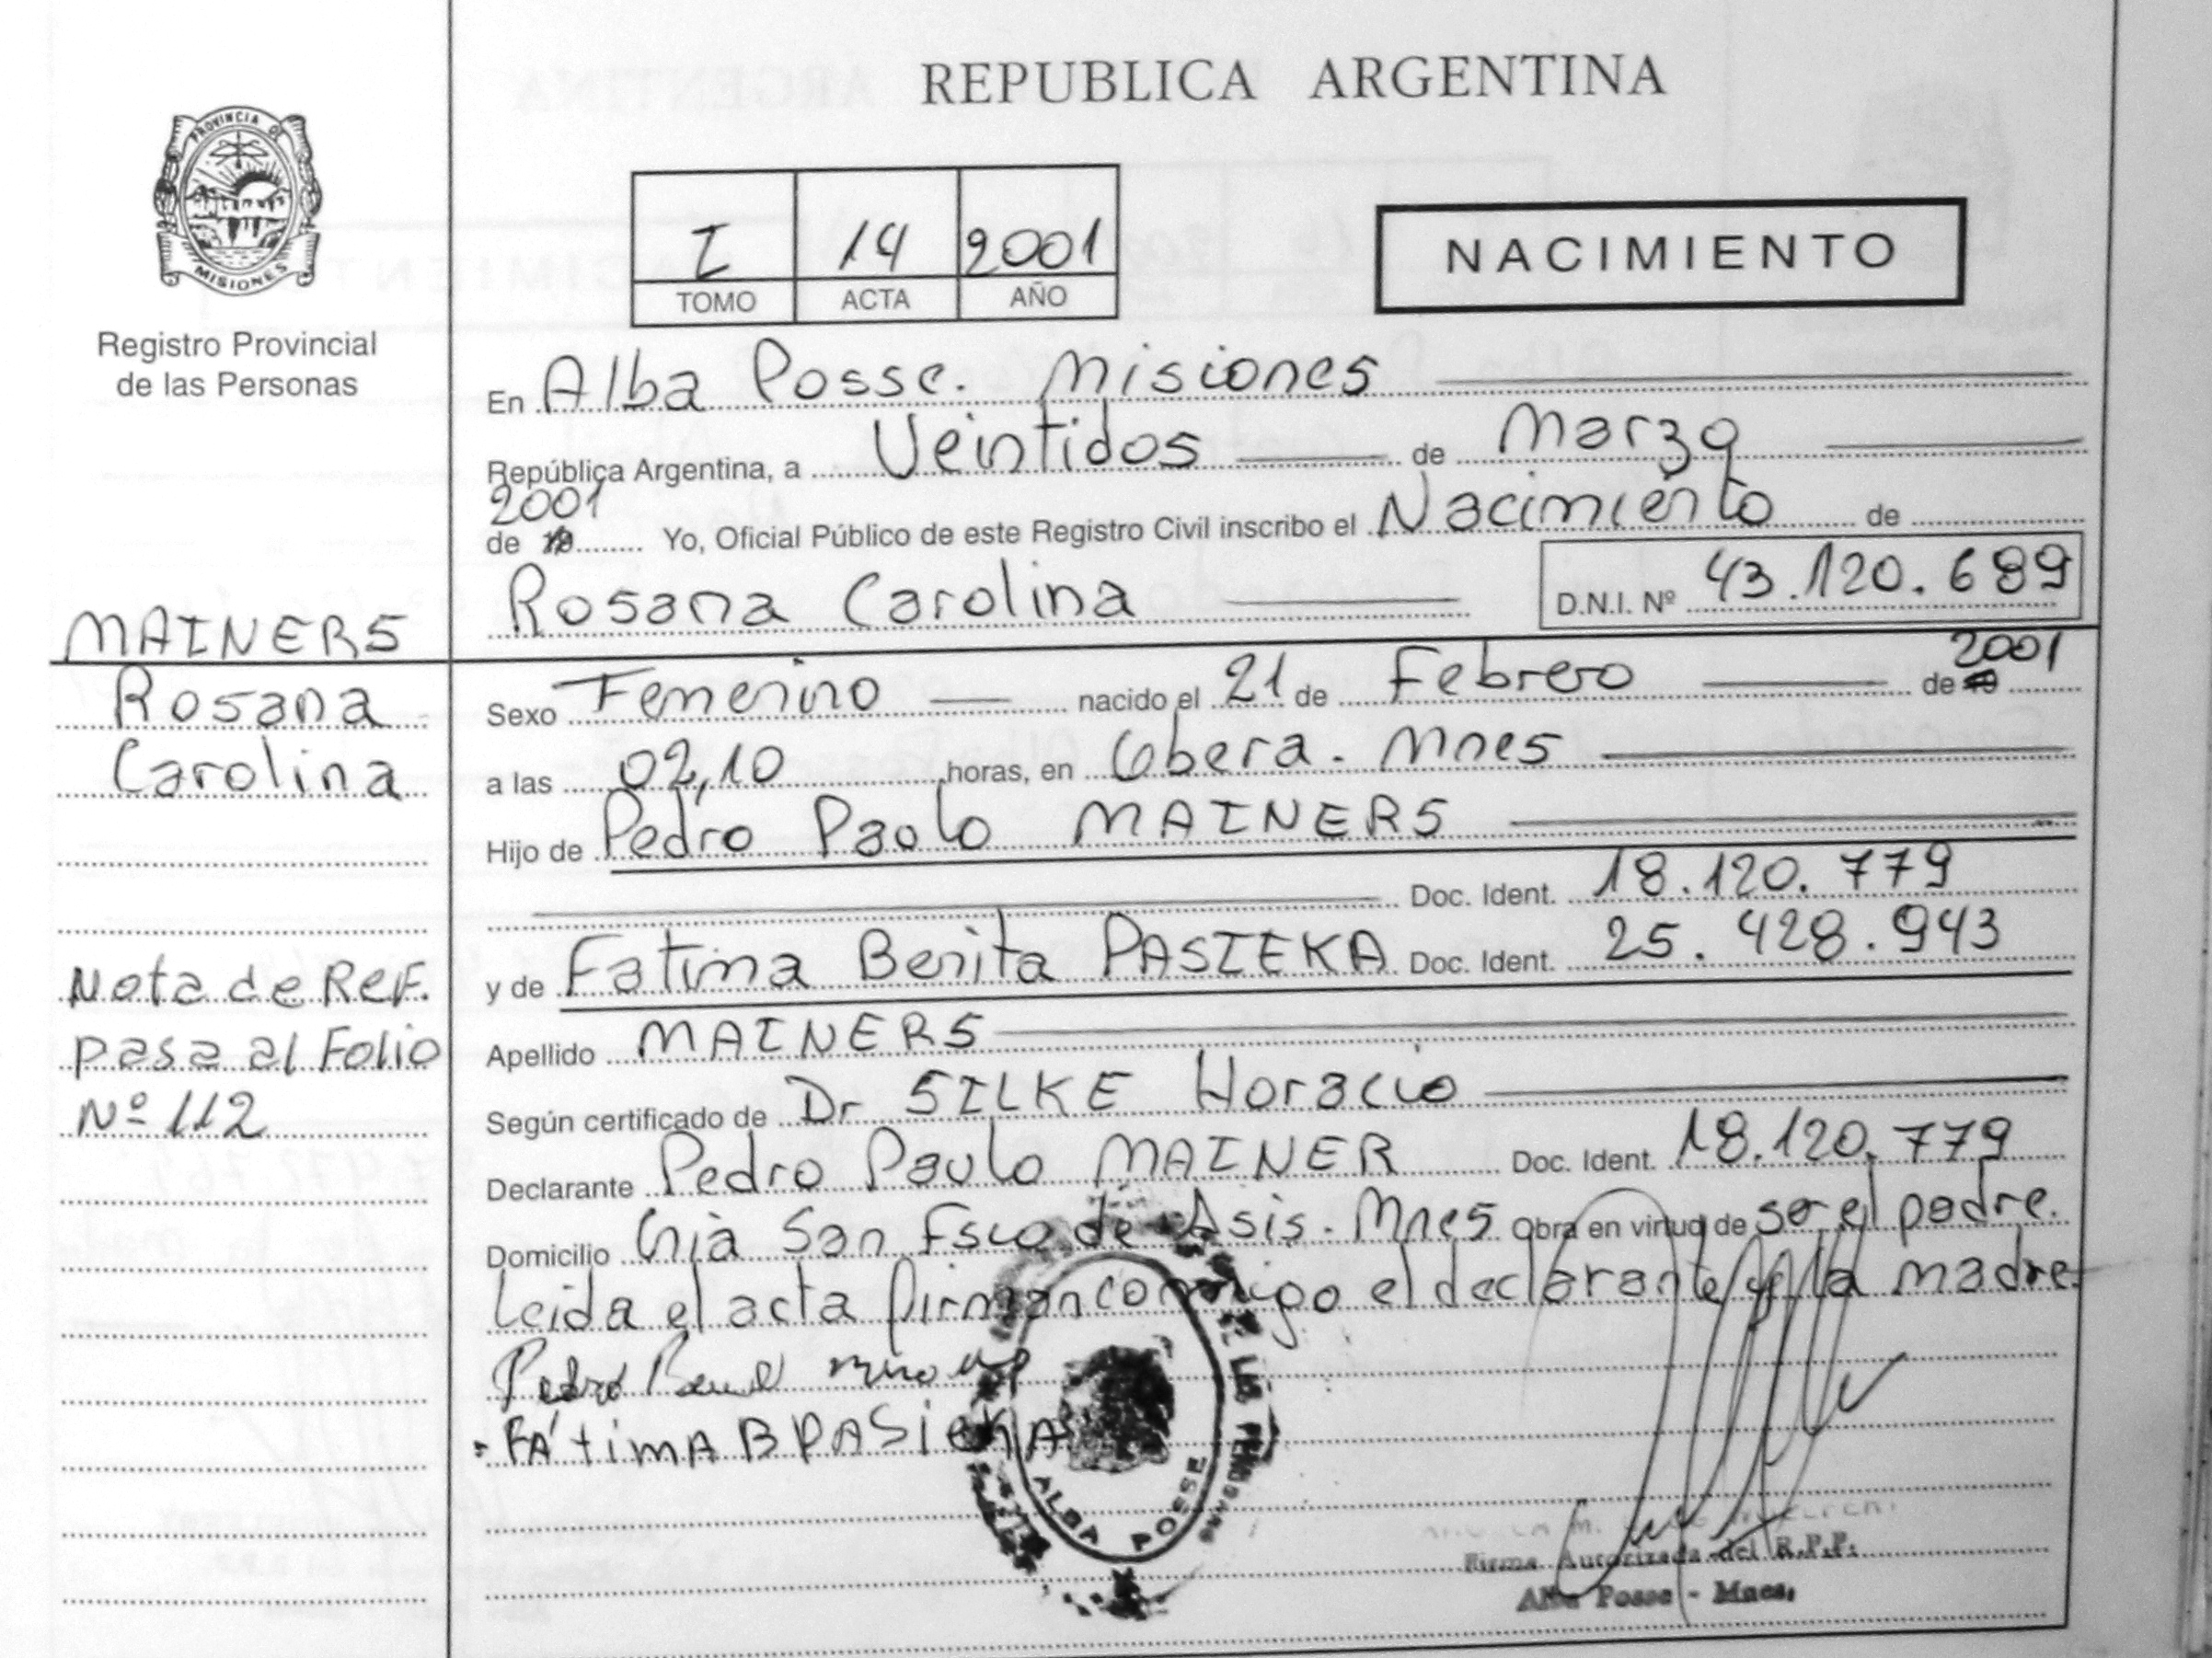 REPUBLICA ARGENTINA
PROVINCIA DE
MISIONES
Registro Provincial
de las Personas
I 14 2001
TOMO ACTA AÑO
NACIMIENTO
En Alba Posse. Misiones
República Argentina, a Veintidos de Marzo
2001
de 19 Yo, Oficial Público de este Registro Civil inscribo el Nacimiento de
Rosana Carolina D.N.I. Nº 43.120.689
MAINERS
Rosana
Carolina
Nota de Ref.
pasa al Folio
Nº 112
2001
Sexo Femenino nacido el 21 de Febrero de 19
a las 02,10 horas, en Obera. Mnes
Hijo de Pedro Paulo MAINERS
Doc. Ident. 18.120.779
y de Fatima Benita PASIEKA Doc. Ident. 25.428.943
Apellido MAINERS
Según certificado de Dr SILKE Horacio
Declarante Pedro Paulo MAINER Doc. Ident. 18.120.779
Domicilio Cnia San Fsco de Asis. Mnes Obra en virtud de ser el padre.
Leida el acta firman conmigo el declarante y la madre.
Pedro
FÁtimA B PASiekA
ALBA POSSE
Firma Autorizada del R.P.P.
Alba Posse - Mnes.